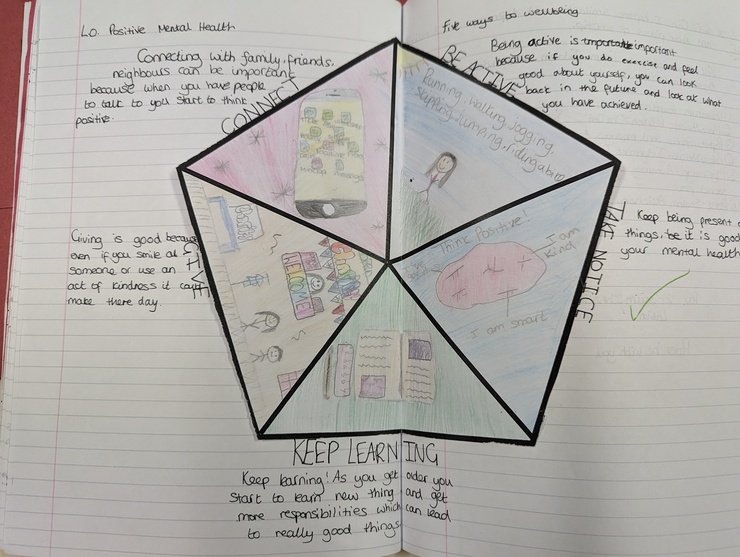 LO. Positive Mental Health
Five ways to wellbeing
Connecting with family, friends,
neighbours can be important
because when you have people
to talk to you start to think
positive.
CONNECT
BE ACTIVE
Being active is important
because if you do exercise and feel
good about yourself, you can look
back in the future and look at what
you have achieved.
Running, walking, jogging,
skipping, jumping, riding a bike
Giving is good because
even if you smile at
someone or use an
act of kindness it can
make there day.
GIVE
WELCOME
TAKE NOTICE
Think Positive!
I am
kind
I am smart
Keep being present
things, it is good
your mental health
KEEP LEARNING
Keep learning! As you get older you
start to learn new thing and get
more responsibilities which can lead
to really good things.